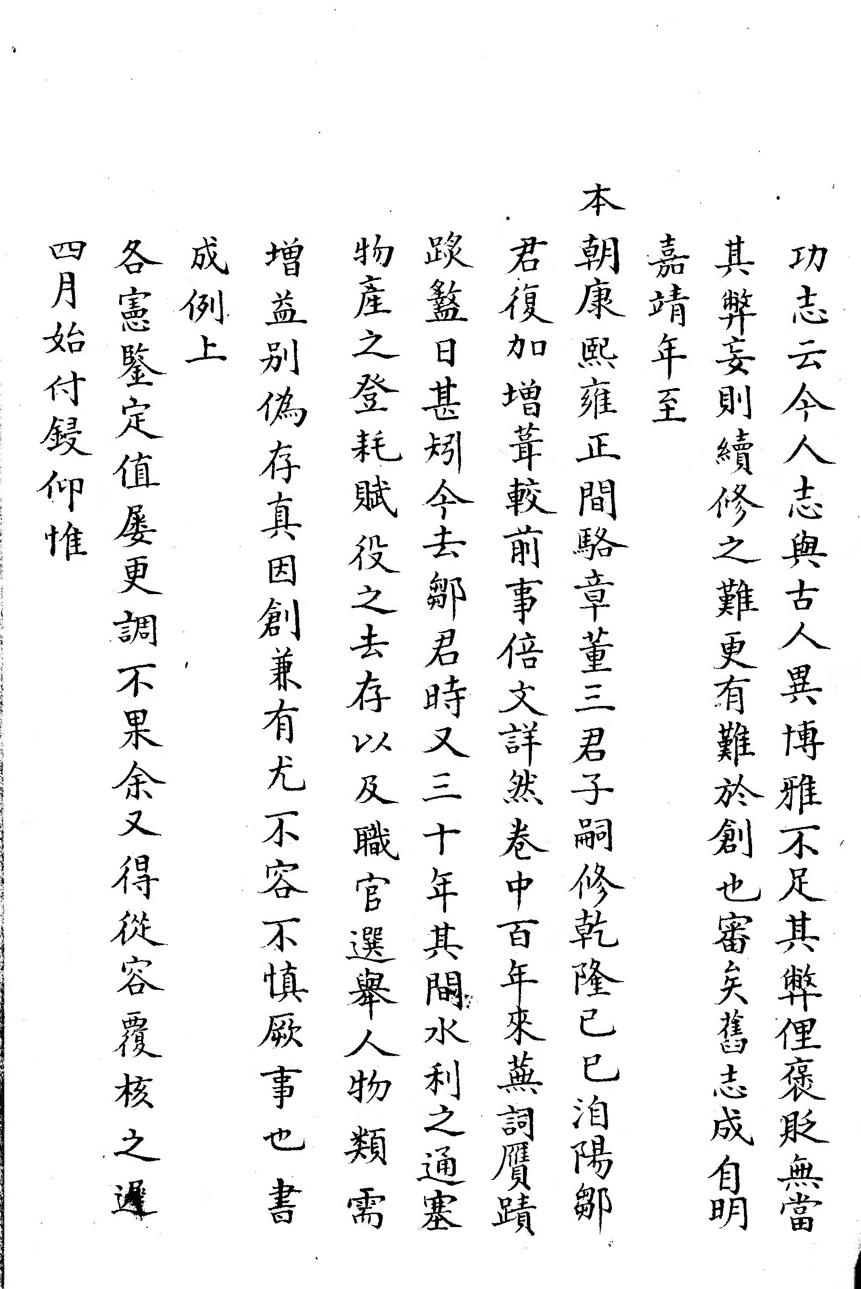 功志云今人志與古人異博雅不足其弊俚褒貶無當
其弊妄則續修之難更有難於創也審矣舊志成自明
嘉靖年至
本朝康熙雍正間駱章董三君子嗣修乾隆已巳洎陽鄒
君復加增葺較前事倍文詳然卷中百年來蕪詞贋蹟
踆盭日甚矧今去鄒君時又三十年其間水利之通塞
物產之登耗賦役之去存以及職官選舉人物類需
增益別偽存真因創兼有尤不容不慎厥事也書
成例上
各憲鑒定值屡更調不果余又得從容覆核之遲
四月始付鋟仰惟